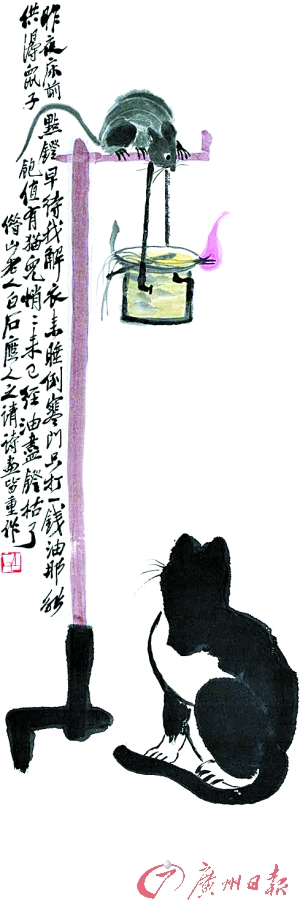 昨夜床前點鐙早待我解衣來睡倒寒門只打一錢油那能
供得鼠子飽值有猫兒悄〻来已經油盡鐙枯了
借山老人白石應人之請詩畫皆重作
廣州日報